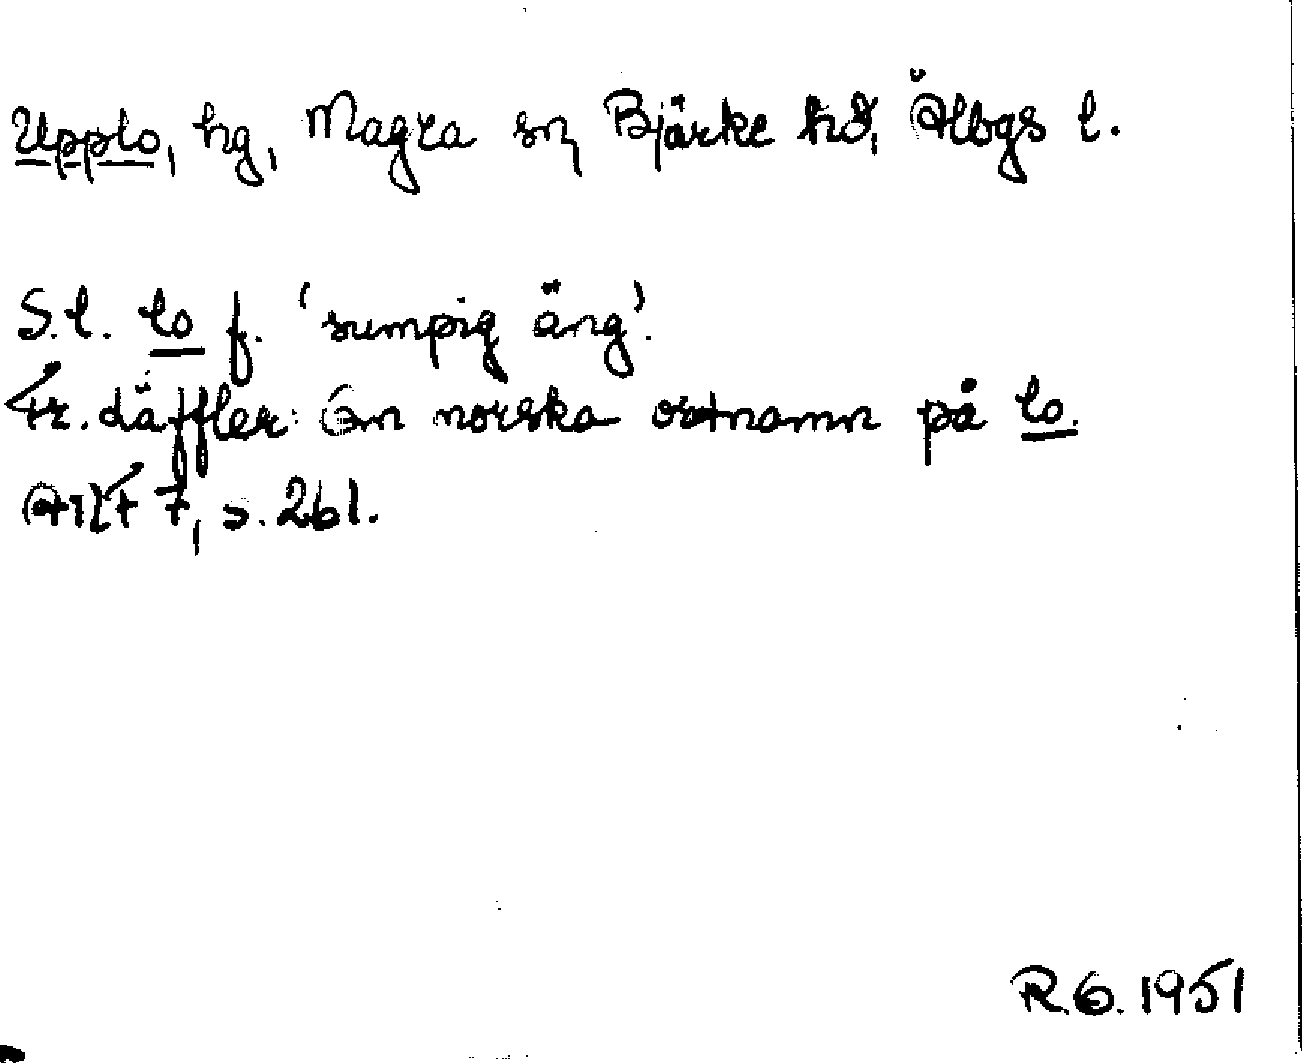 Upplo, hg, Magra sn, Bjärke hd, Älvbgs l.
S.l. lo f. 'sumpig äng'.
Fr. Läffler: Om norska ortnamn på lo.
ANF 7, s. 261.
R.G. 1951